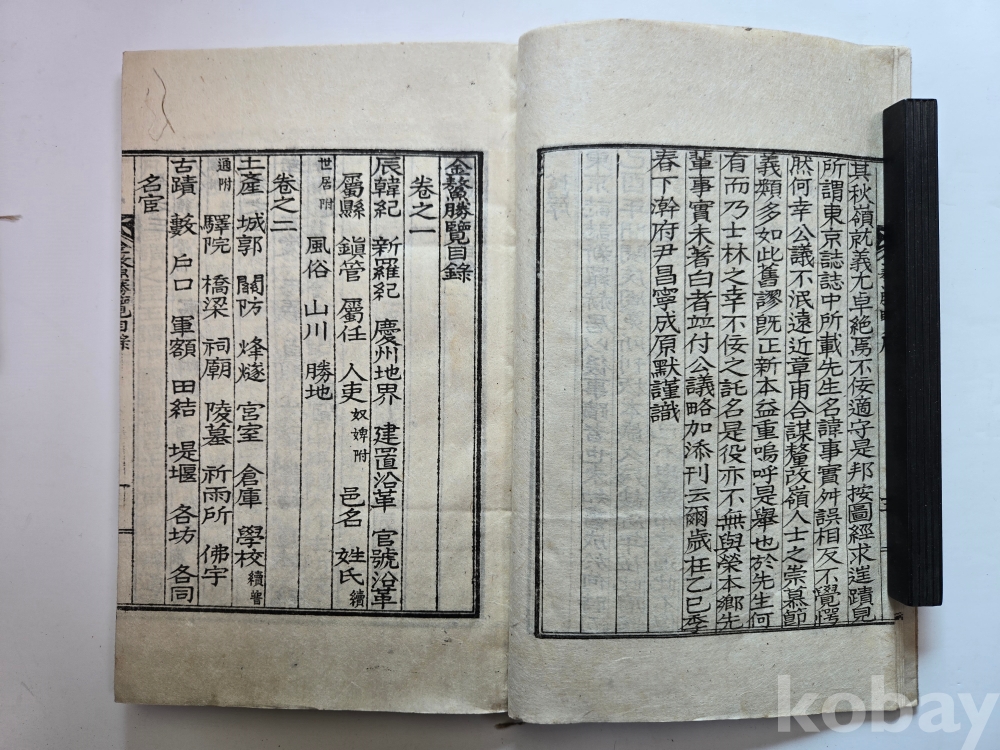 其秋領就義尤卓絶焉不佞適守是邦按圖經求逞蹟見
所謂東京誌誌中所載先生名諱事實舛誤相反不覺愕
然何幸公議不泯遠近章甫合謀釐改嶺人士之崇慕節
義類多如此舊謬旣正新本益重嗚呼是擧也於先生何
有而乃士林之幸不佞之託名是役亦不無與榮本鄕先
輩事實未著白者並付公議略加添刊云爾歲在乙巳季
春下澣府尹昌寧成原默謹識
金鰲勝覽目錄
卷之一
辰韓紀 新羅紀 慶州地界 建置沿革 官號沿革
屬縣 鎭管 屬任 人吏 奴婢附 邑名 姓氏 續
世居附 風俗 山川 勝地
卷之二
土產 城郭 關防 烽燧 宮室 倉庫 學校 續
通附 驛院 橋梁 祠廟 陵墓 祈雨所 佛宇
古蹟 藪 戶口 軍額 田結 堤堰 各坊 各同
名宦
kobay